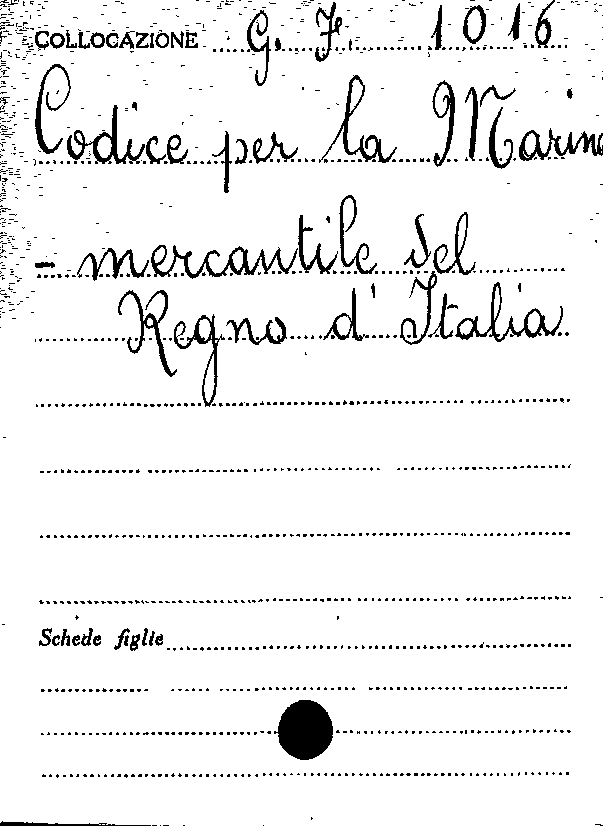 COLLOCAZIONE G. F. 1016
Codice per la Marina
- mercantile del
Regno d'Italia
Schede figlie